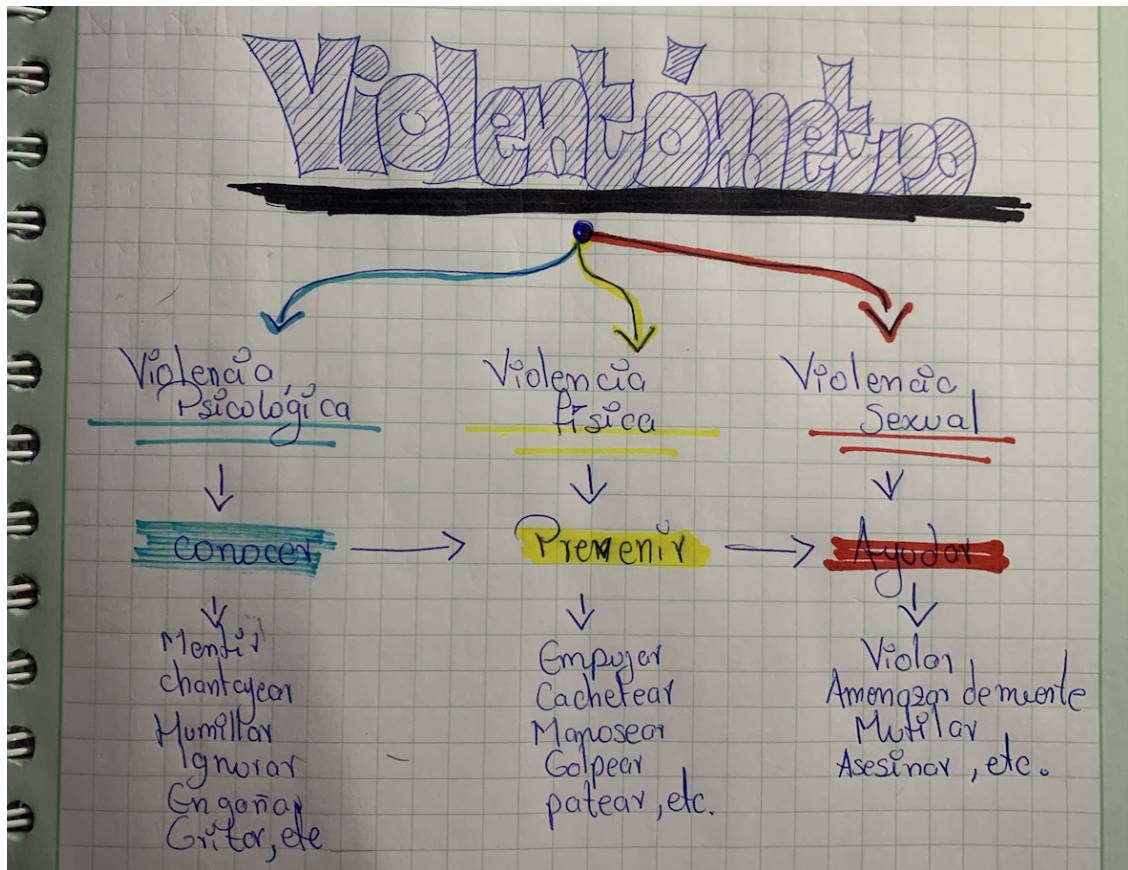 Violentómetro
Violencia
Psicológica
Violencia
física
Violencia
Sexual
conocer
Prevenir
Ayudar
Mentir
chantajear
Humillar
Ignorar
Engañar
Gritar, etc
Empujar
Cachetear
Manosear
Golpear
patear, etc.
Violar,
Amenazar de muerte
Mutilar
Asesinar, etc.